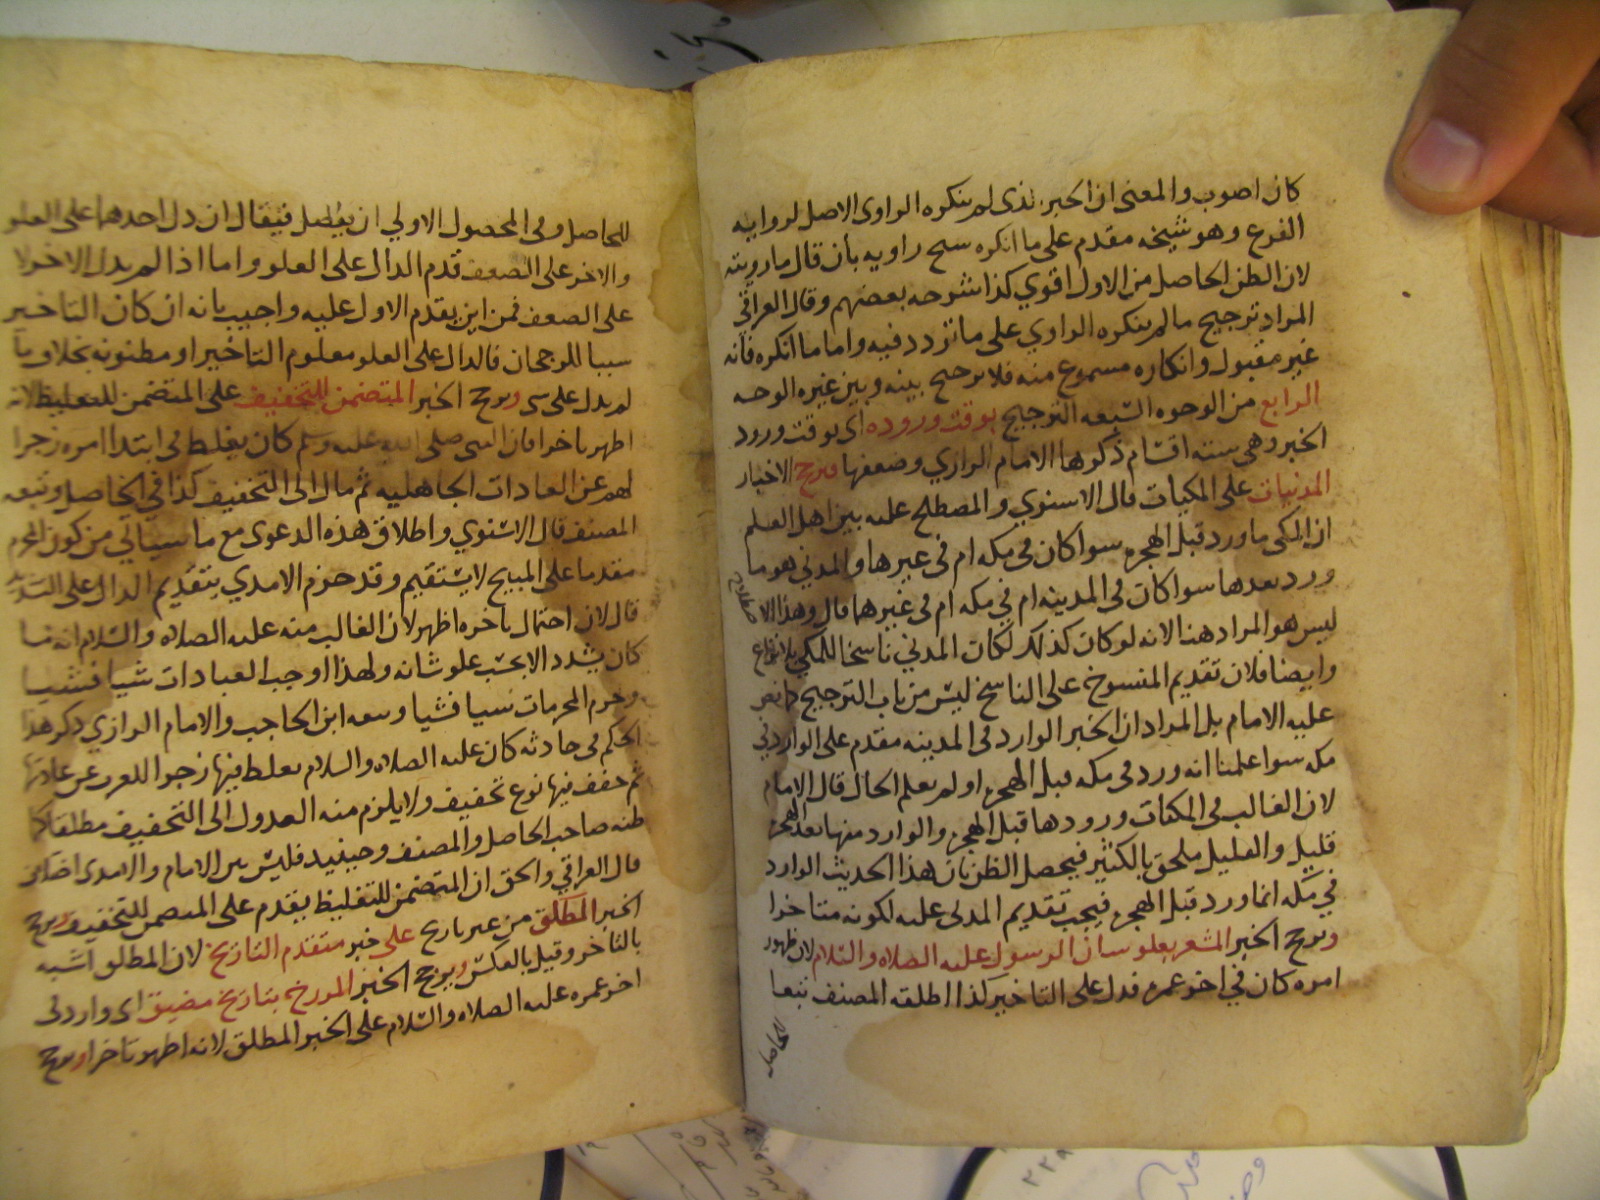 كان اصوب والمعنى ان الخبر الذى لم ينكره الراوى الاصل لروايه
الفرع وهو شيخه مقدم على ما انكره شيخ راويه بان قال ما رويته
لان الظن الحاصل من الاول اقوي كذا شرحه بعضهم وقال العراقي
المراد ترجيح ما لم ينكره الراوي على ما تردد فيه واما ما انكره فانه
غير مقبول وانكاره مسموع منه فلا ترجيح بينه وبين غيره الوجه
الرابع من الوجوه السبعه الترجيح بوقت وروده اى بوقت ورود
الخبر وهى سته اقسام ذكرها الامام الرازي وضعفها فيرجح الاخبار
المدنيات على المكيات قال الاسنوي والمصطلح عليه بين اهل العلم
ان المكى ما ورد قبل الهجره سوا كان فى مكه ام فى غيرها والمدني هو ما
ورد بعدها سوا كان في المدينه ام في مكه ام في غيرهما قال وهذا الاصطلاح
ليس هو المراد هنا لانه لو كان كذلك لكان المدني ناسخا للمكي بلا نزاع
وايضا فلان تقديم المنسوخ على الناسخ ليس من باب الترجيح كما نص
عليه الامام بل المراد ان الخبر الوارد فى المدينه مقدم على الوارد في
مكه سوا علمنا انه ورد فى مكه قبل الهجره او لم يعلم الحال قال الامام
لان الغالب فى المكيات ورودها قبل الهجره والوارد منها بعد الهجره
قليل والقليل ملحق بالكثير فيحصل الظن بان هذا الحديث الوارد
في مكه انما ورد قبل الهجره فيجب تقديم المدنى عليه لكونه متاخرا
ويرجح الخبر المشعر بعلو شان الرسول عليه الصلاه والسلام لان ظهور
امره كان في اخر عمره فدل على التاخير كذا اطلقه المصنف تبعا
للحاصل
للحاصل وفى المحصول الاولي ان يفصل فيقال ان دل احدهما على العلو
والاخر على الضعف قدم الدال على العلو واما اذا لم يدل الاخر لا
على الضعف فمن اين يقدم الاول عليه واجيب بانه ان كان التاخير
سببا للرجحان فالدال على العلو معلوم التاخير او مظنونه بخلاف ما
لم يدل على شى ويرجح الخبر المتضمن للتخفيف على المتضمن للتغليظ لانه
اظهر تاخرا فان النبى صلى الله عليه وسلم كان يغلظ فى ابتدا امره زجرا
لهم عن العادات الجاهليه ثم مال الى التخفيف كذا في الحاصل وتبعه
المصنف قال الاسنوي واطلاق هذه الدعوى مع ما سياتي من كون المحرم
مقدما على المبيح لا يستقيم وقد جزم الامدي بتقديم الدال على التشديد
قال لان احتمال تاخره اظهر لان الغالب منه عليه الصلاه والسلام انه ما
كان يشدد الا بحسب علو شانه ولهذا اوجب العبادات شيا فشيا
وحرم المحرمات شيا فشيا وتبعه ابن الحاجب والامام الرازي ذكر هذا
الحكم فى حادثه كان عليه الصلاه والسلام يغلظ فيها زجرا للعرب عن عادتها
ثم خفف فيها نوع تخفيف ولا يلزم منه العدول الى التخفيف مطلقا كما
ظنه صاحب الحاصل والمصنف وحينيذ فليس بين الامام والامدى اختلاف
قال العراقي والحق ان المتضمن للتغليظ يقدم على المتضمن للتخفيف ويرجح
الخبر المطلق من غير تاريخ على خبر متقدم التاريخ لان المطلق اشبه
بالتاخر وقيل بالعكس ويرجح الخبر المورخ بتاريخ مضيق اى وارد فى
اخر عمره عليه الصلاه والسلام على الخبر المطلق لانه اظهر تاخرا ويرجح